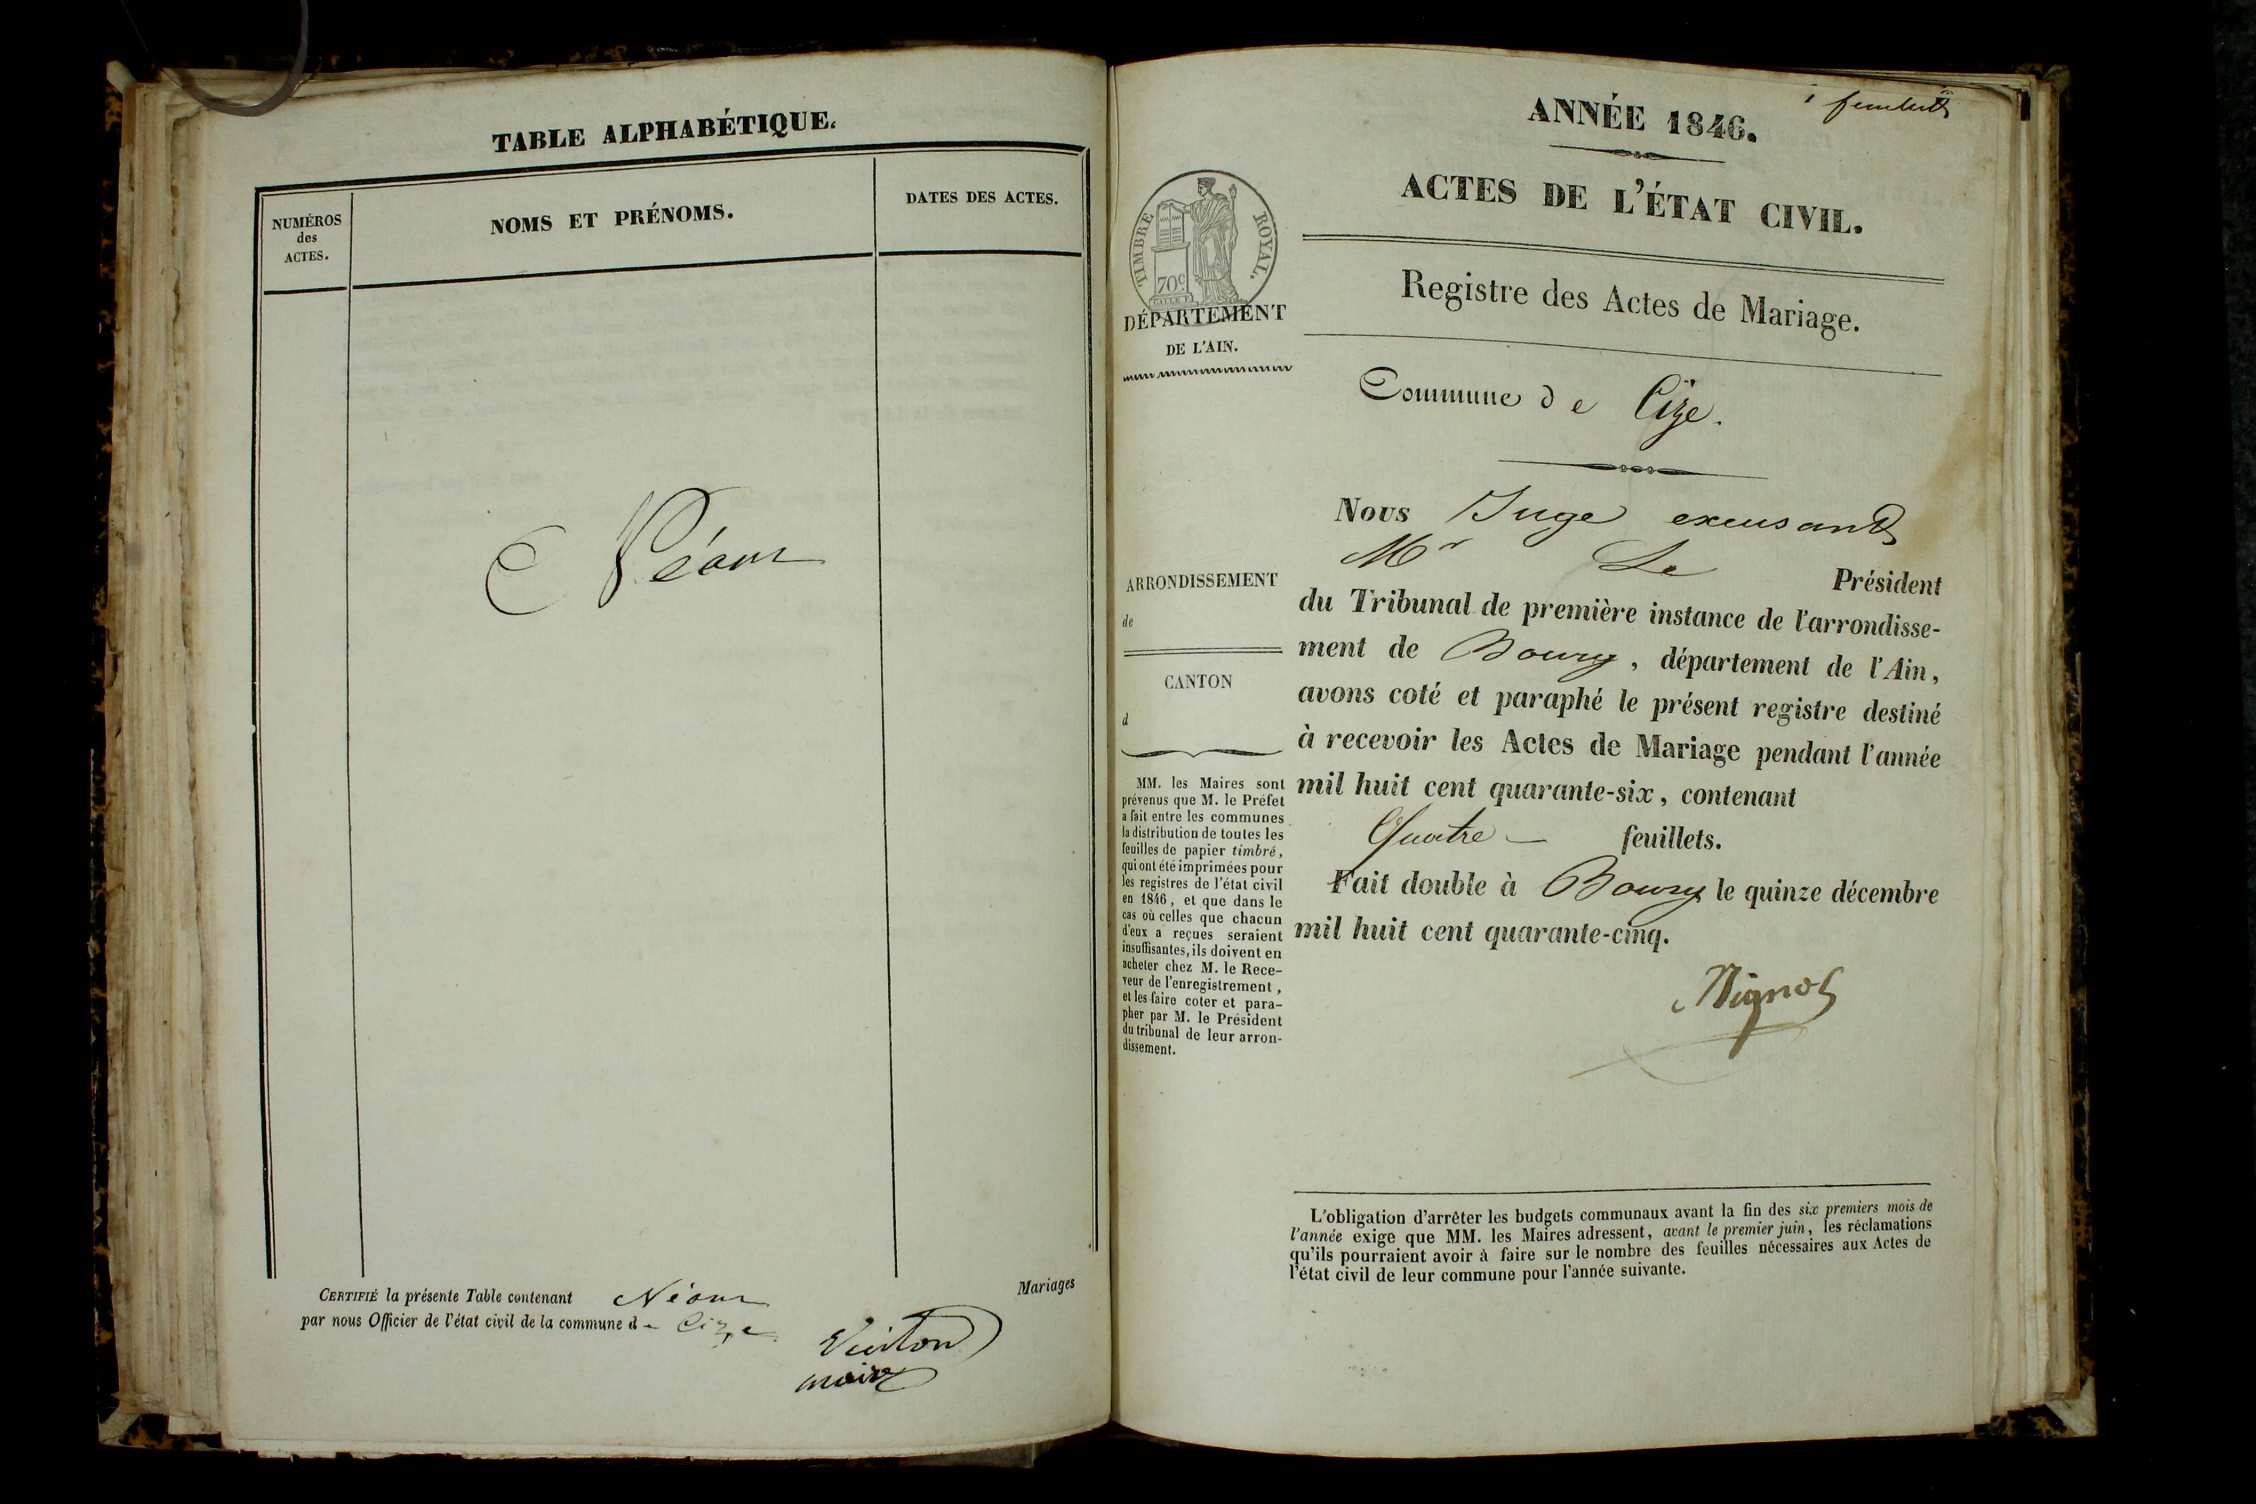 TABLE ALPHABÉTIQUE.
NUMÉROS
des
ACTES.
NOMS ET PRÉNOMS.
DATES DES ACTES.
Néant
CERTIFIÉ la présente Table contenant Néant Mariages
par nous Officier de l'état civil de la commune de Cize
maire
1er feuillet
ANNÉE 1846.
ACTES DE L'ÉTAT CIVIL.
TIMBRE ROYAL.
70c
DÉPARTEMENT
DE L'AIN.
Registre des Actes de Mariage.
Commune de Cize.
ARRONDISSEMENT
de
CANTON
d
MM. les Maires sont
prévenus que M. le Préfet
a fait entre les communes
la distribution de toutes les
feuilles de papier timbré,
qui ont été imprimées pour
les registres de l'état civil
en 1846, et que dans le
cas où celles que chacun
d'eux a reçues seraient
insuffisantes, ils doivent en
acheter chez M. le Rece-
veur de l'enregistrement,
et les faire coter et para-
pher par M. le Président
du tribunal de leur arron-
dissement.
Nous Juge excusant
Mr Le Président
du Tribunal de première instance de l'arrondisse-
ment de Bourg, département de l'Ain,
avons coté et paraphé le présent registre destiné
à recevoir les Actes de Mariage pendant l'année
mil huit cent quarante-six, contenant
Quatre feuillets.
Fait double à Bourg le quinze décembre
mil huit cent quarante-cinq.
L'obligation d'arrêter les budgets communaux avant la fin des six premiers mois de
l'année exige que MM. les Maires adressent, avant le premier juin, les réclamations
qu'ils pourraient avoir à faire sur le nombre des feuilles nécessaires aux Actes de
l'état civil de leur commune pour l'année suivante.